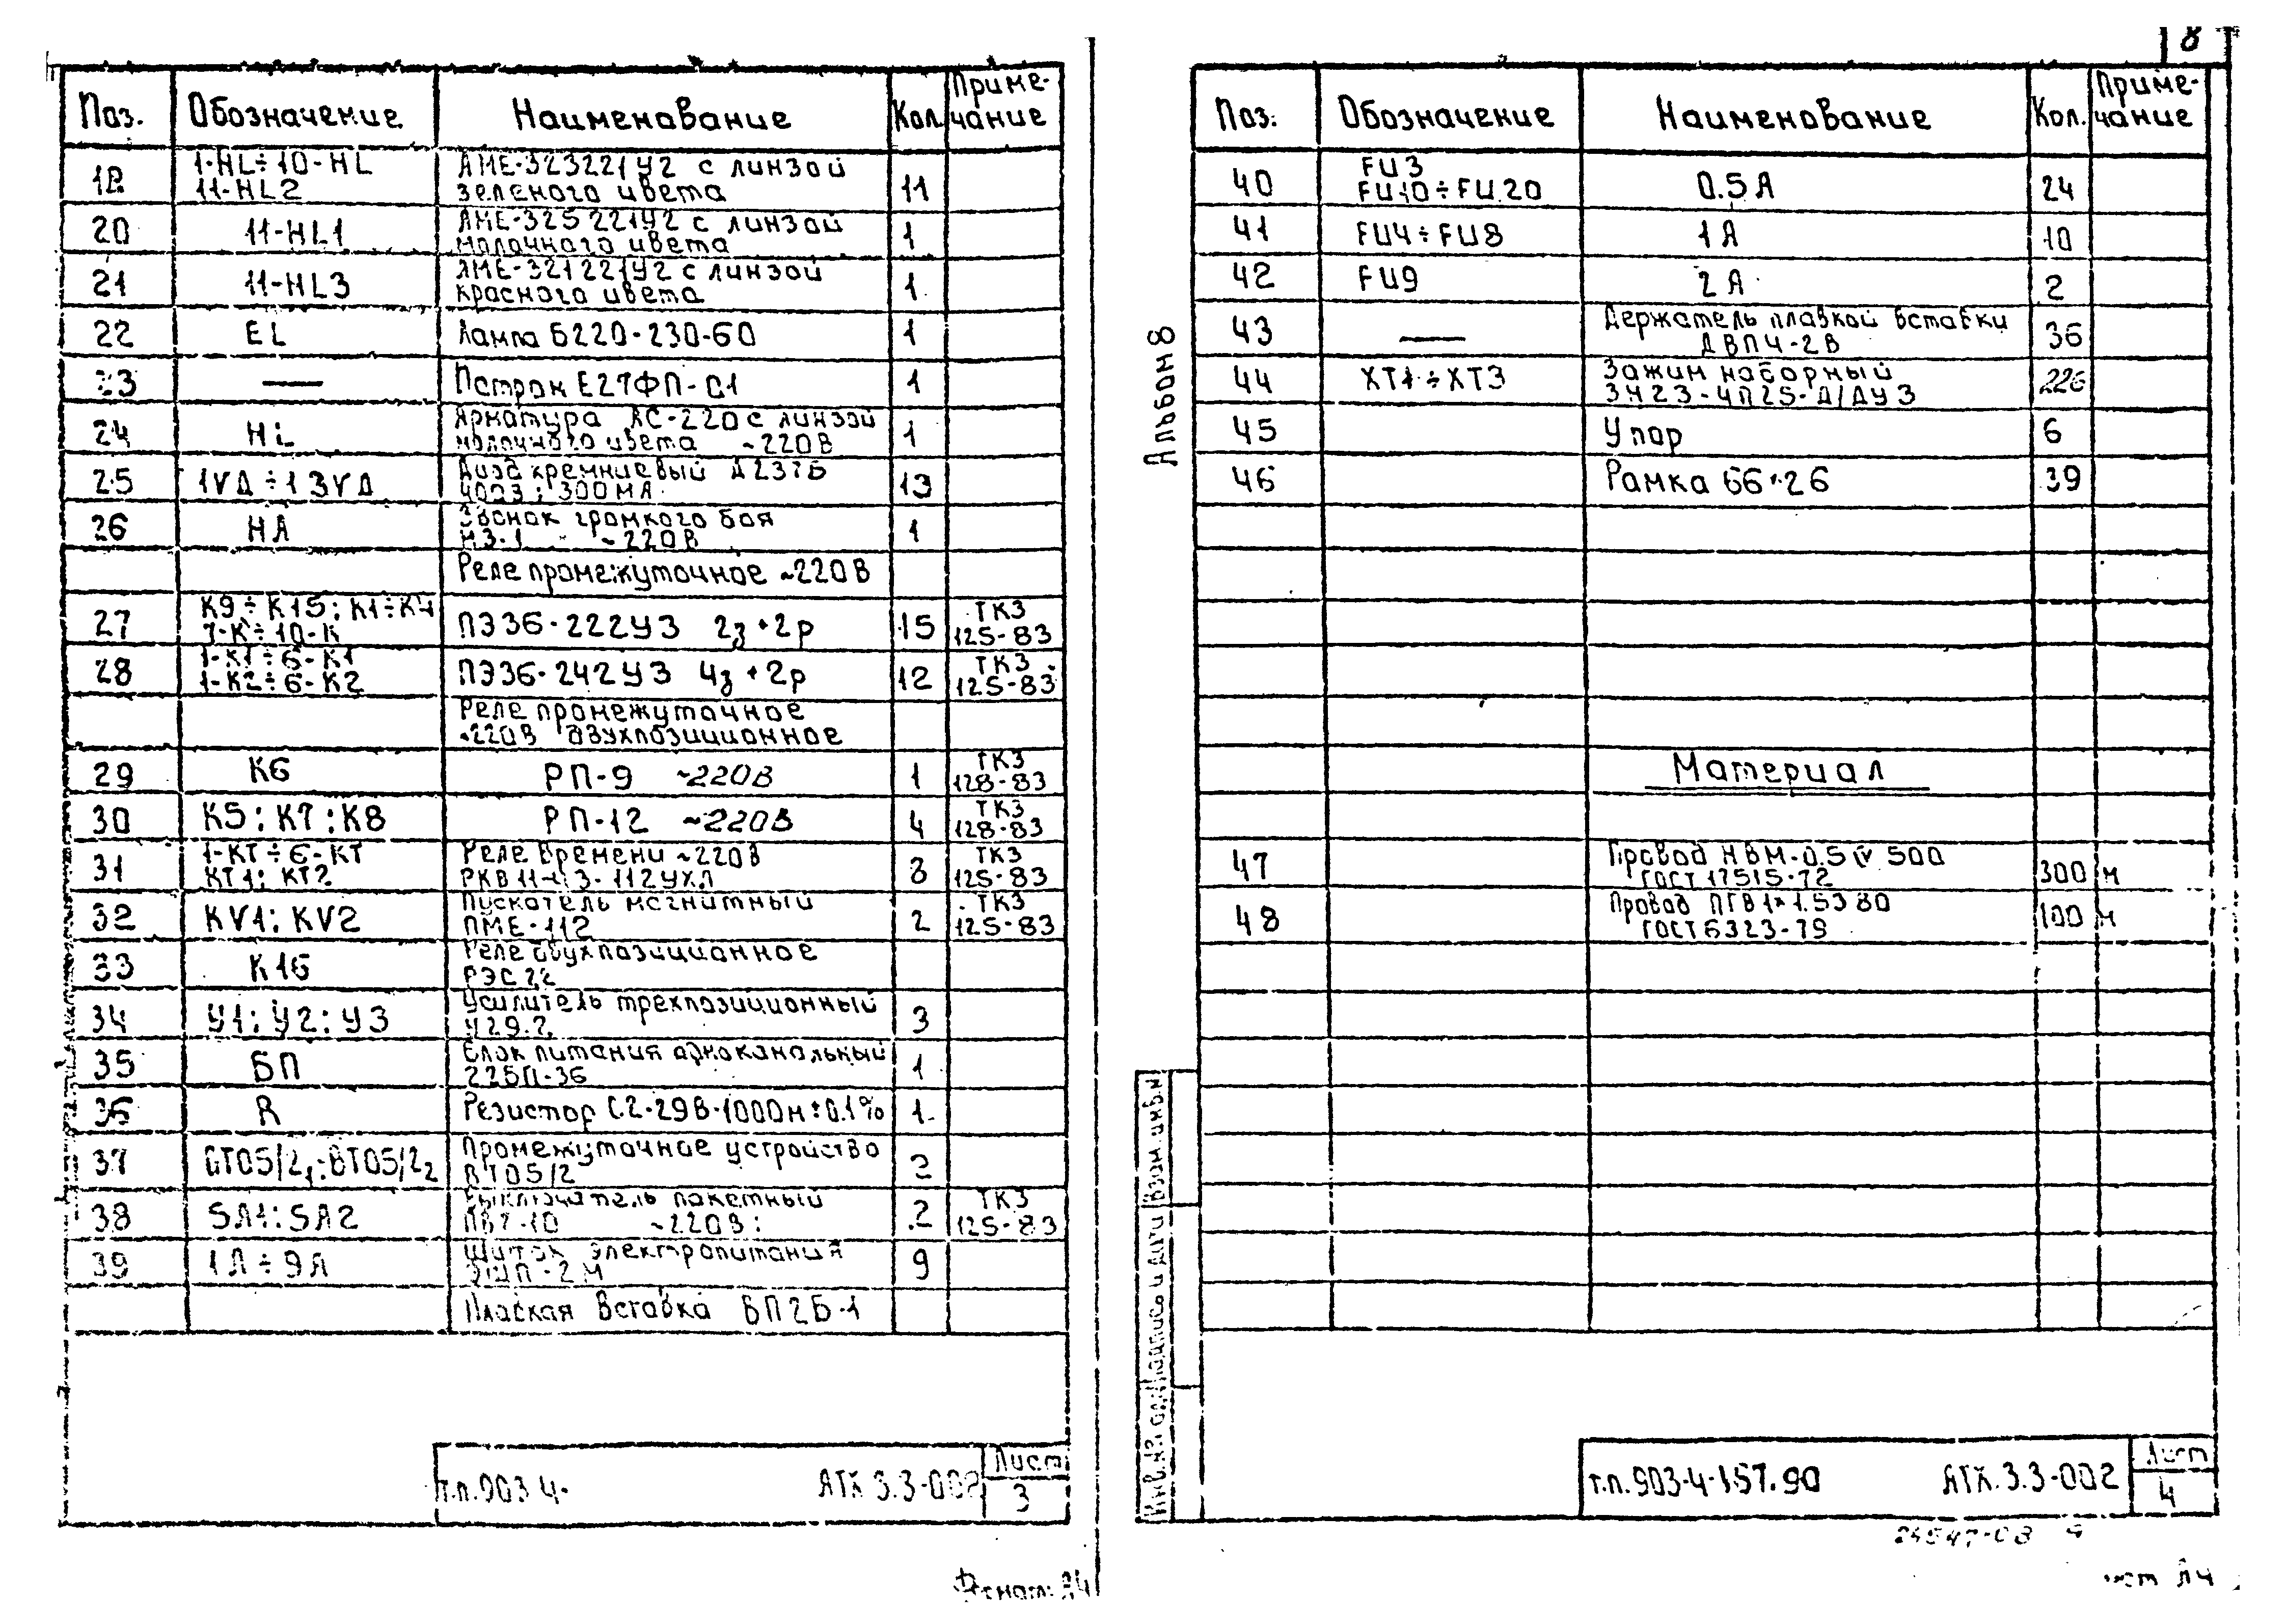 Поз. Обозначение Наименование Кол. Приме-
чание
1-HL÷10-HL АМЕ-323221У2 с линзой
11-HL2 зеленого цвета 11
20 11-HL1 АМЕ-325221У2 с линзой
молочного цвета 1
21 11-HL3 АМЕ-321221У2 с линзой
красного цвета 1
22 EL Лампа Б220-230-60 1
23 — Патрон Е27ФП-01 1
24 HL Арматура АС-220 с линзой
молочного цвета ~220В 1
25 1VД÷13VД Диод кремниевый
300мА 13
26 НА Звонок громкого боя
МЗ-1 ~220В 1
Реле промежуточное ~220В
27 К9÷К15; К1÷К4
7-К÷10-К ПЭ36-222У3 2з+2р 15 ТКЗ
125-83
28 1-К1÷6-К1
1-К2÷6-К2 ПЭ36-242У3 4з+2р 12 ТКЗ
125-83
Реле промежуточное
~220В двухпозиционное
29 К6 РП-9 ~220В 1 ТКЗ
128-83
30 К5; К7; К8 РП-12 ~220В 4 ТКЗ
128-83
31 1-КТ÷6-КТ Реле времени ~220В
КТ1; КТ2 8 ТКЗ
125-83
32 KV1; KV2 Пускатель магнитный
ПМЕ-112 2 ТКЗ
125-83
33 К16 Реле двухпозиционное
РЭС 22
34 У1; У2; У3 Усилитель трехпозиционный
У29.2 3
35 БП Блок питания одноканальный
22БП-36 1
36 R Резистор С2-29В-100Ом±0.1% 1
37 ВТ05/2₁; ВТ05/2₂ Промежуточное устройство
ВТ05/2 2
38 SA1; SA2 Выключатель пакетный
ПВ2-10 ~220В; 2 ТКЗ
125-83
39 1А÷9А Щиток электропитания
ЭЩП-2М 9
Плавкая вставка ВП2Б-1
т.п.903 4- АТХ 3.3-002 Лист
3
Формат: А4
8
Альбом 8
Поз. Обозначение Наименование Кол. Приме-
чание
40 FU3
FU10÷FU20 0.5А 24
41 FU4÷FU8 1А 10
42 FU9 2А 2
43 — Держатель плавкой вставки
ДВП4-2В 36
44 ХТ1÷ХТ3 Зажим наборный
ЗН23-4П25-Д/ДУ3 226
45 Упор 6
46 Рамка 66*26 39
Материал
47 Провод НВМ-0.5 IV 500
ГОСТ 17515-72 300 м
48 Провод ПГВ 1*1.5 380
ГОСТ 6323-79 100 м
Взам. инв.
Подпись и дата
Инв.№
т.п.903-4-157.90 АТХ.3.3-002 Лист
4
24547-08 9
А4